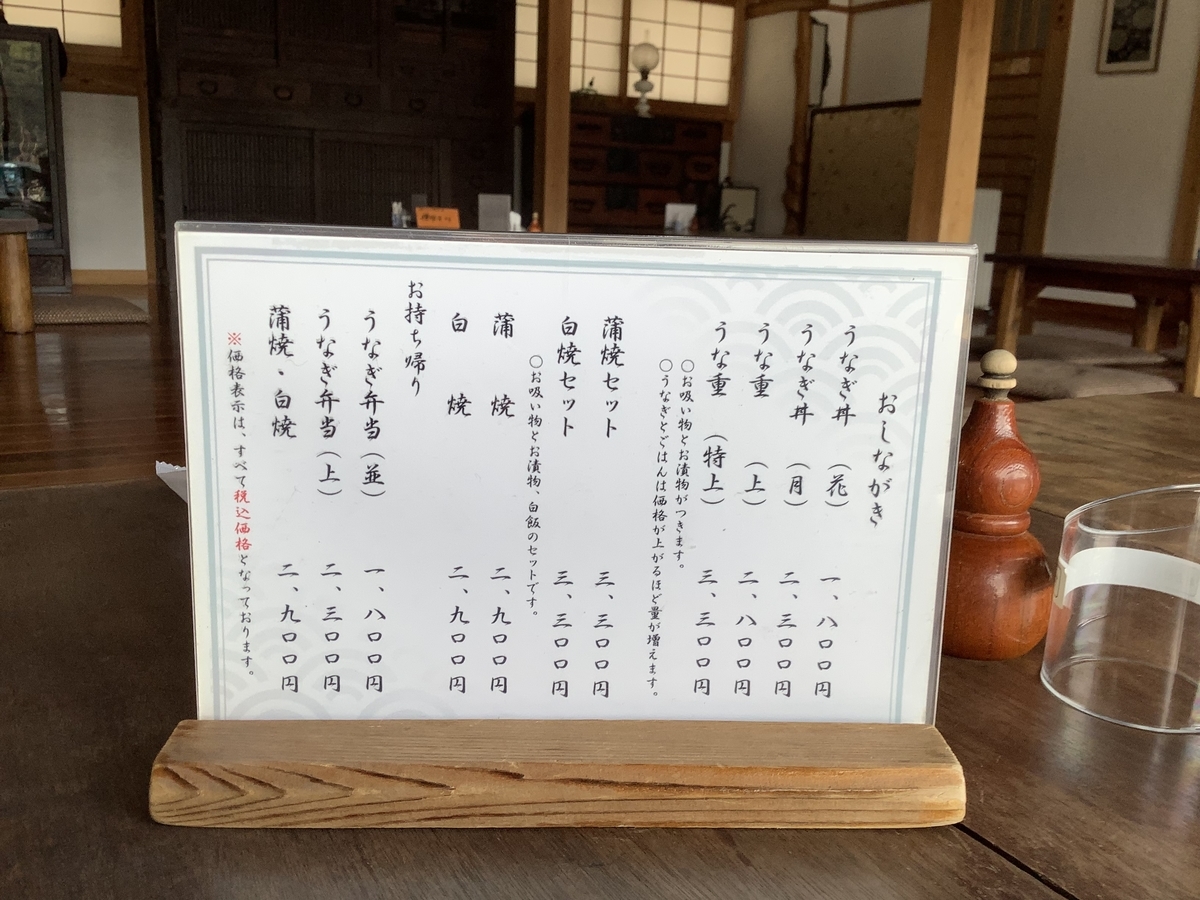 おしながき
うなぎ丼 (花) 一、八〇〇円
うなぎ丼 (月) 二、三〇〇円
うな重 (上) 二、八〇〇円
うな重 (特上) 三、三〇〇円
○お吸い物とお漬物がつきます。
○うなぎとごはんは価格が上がるほど量が増えます。
蒲焼セット 三、三〇〇円
白焼セット 三、三〇〇円
○お吸い物とお漬物、白飯のセットです。
蒲焼 二、九〇〇円
白焼 二、九〇〇円
お持ち帰り
うなぎ弁当(並) 一、八〇〇円
うなぎ弁当(上) 二、三〇〇円
蒲焼・白焼 二、九〇〇円
※価格表示は、すべて税込価格となっております。